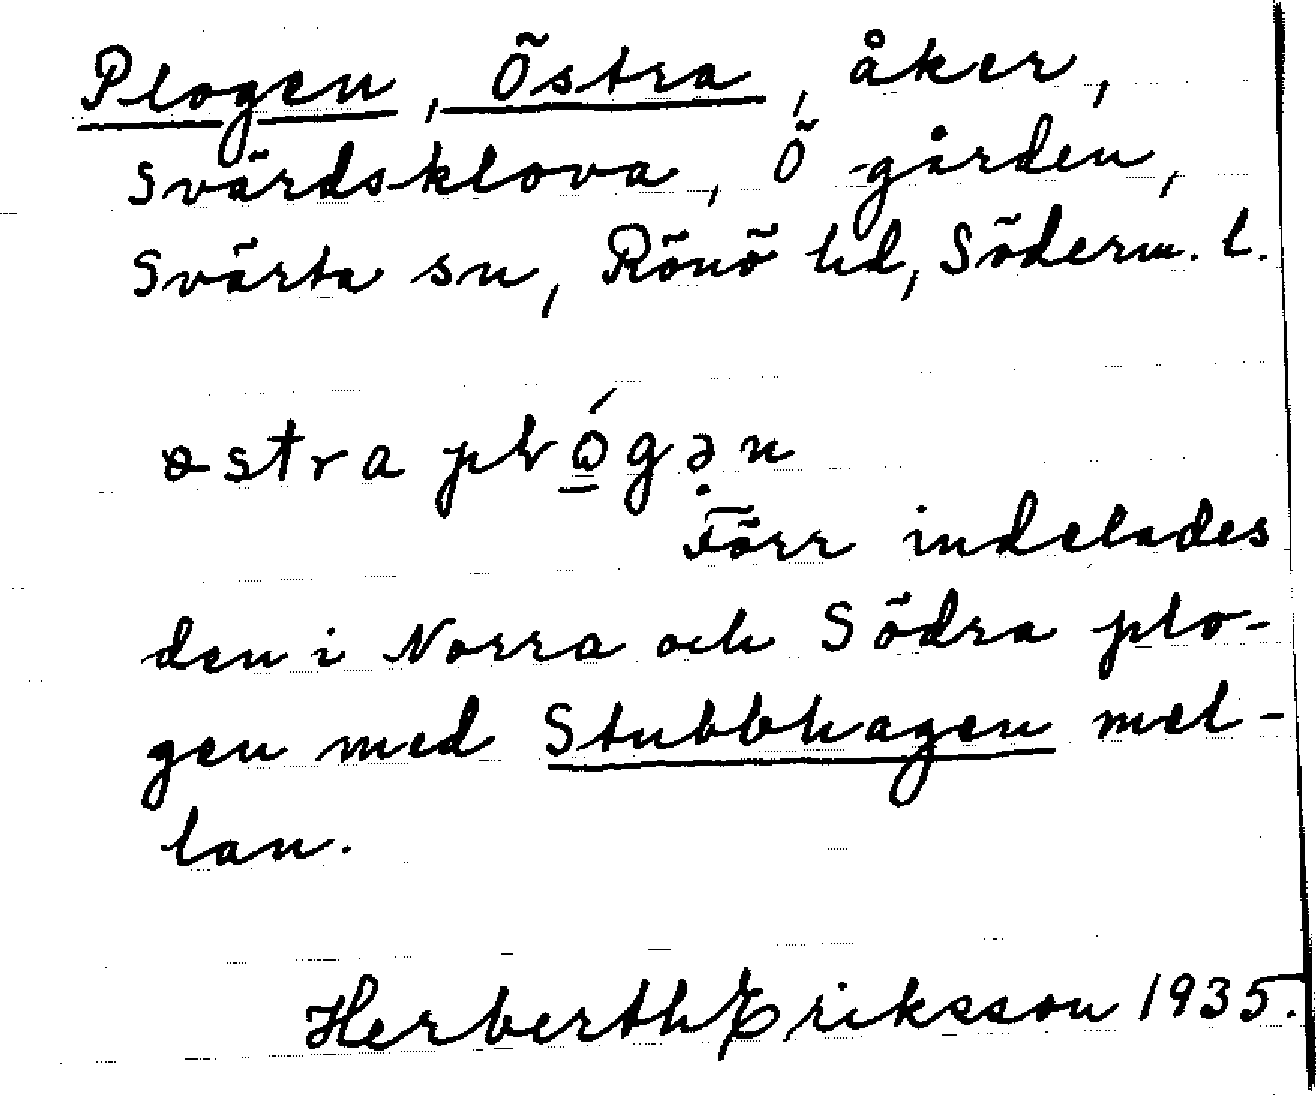 Plogen, Östra, åker,
Svärdsklova, Ö-gården,
Svärta sn, Rönö hd, Söderm. l.
østra plǫ́gən
Förr indelades
den i Norra och Södra plo-
gen med Stubbhagen mel-
lan.
Herberth Eriksson 1935.